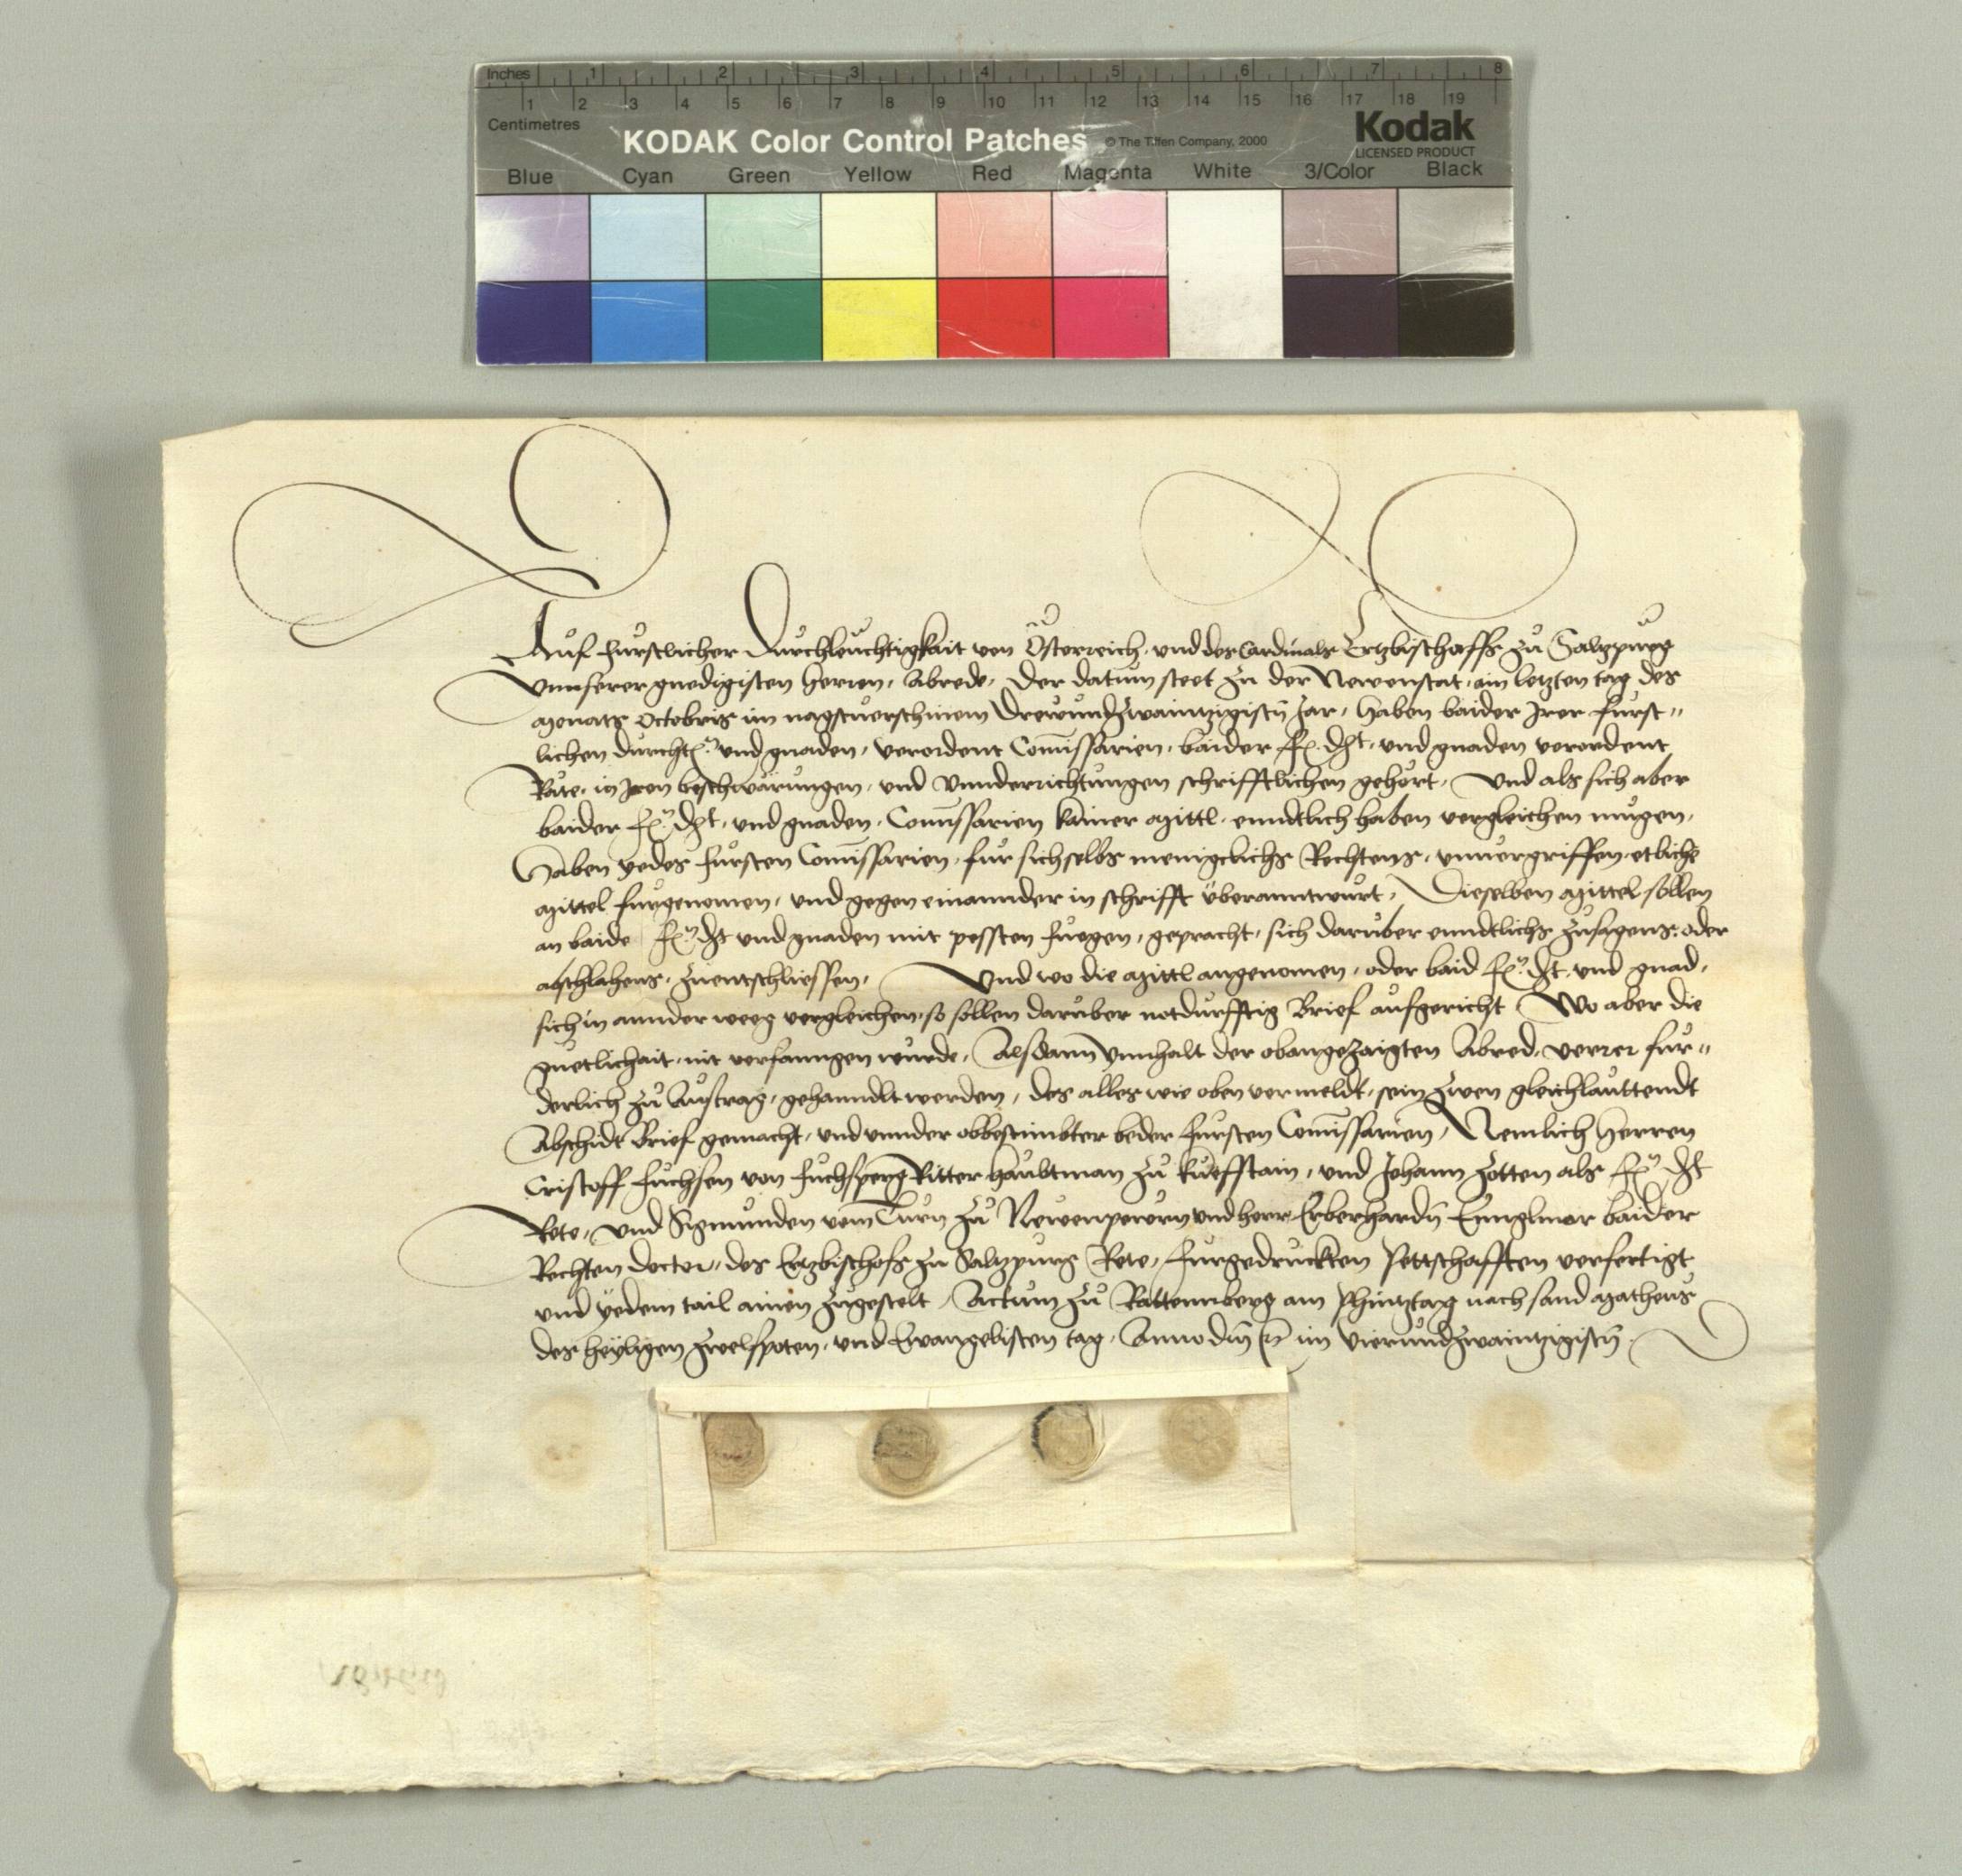 Inches 1 2 3 4 5 6 7 8
1 2 3 4 5 6 7 8 9 10 11 12 13 14 15 16 17 18 19
Centimetres
KODAK Color Control Patches © The Tiffen Company, 2000 Kodak
LICENSED PRODUCT
Blue Cyan Green Yellow Red Magenta White 3/Color Black
Auf furstlicher Durchleuchtigkait von Österreich, und des Cardinals Ertzbischoffs zu Saltzpurg
Unnserer gnedigisten Herren, Abrede, Der datum steet zu der Newenstat, am letzten tag des
Monats Octobris im nagstverschinem Drewundzwaintzigistn̄ Jar, Haben baider Irer furst„
lichen durchlt. und gnaden, verordent Com̄issarien, baider fl. dht, und gnaden verordent
Räte, in Iren beschwärungen, und Unnderrichtungen schrifftlichen gehört, Und als sich aber
baider fl. dht, und gnaden, Com̄issarien kainer Mittl, enndtlich haben vergleichen mugen,
Haben yedes fursten Com̄issarien, fur sichselbs menigclichs Rechtens, unvergriffen, etliche
Mittel furgenomen, und gegen einannder in schrifft überanntwurt, Dieselben Mittel sollen
an baide fl. dht und gnaden mit pessten fuegen, gepracht, sich daruber enndtlichs zusagens, oder
abschlahens, zuentschliessen, Und wo die Mittl angenomen, oder baid fl. dht. und gnad,
sich in annder weeg vergleichen, so sollen daruber notdurfftig Brief aufgericht Wo aber die
guetlichait, nit verfanngen wurde, Alsdann Innhalt der obangezaigten Abred, verrer fur„
derlich zu Austrag, gehanndlt werden, des alles wie oben vermeldt, sein zwen gleichlauttendt
Abschidt Brief gemacht, und unnder obbestimbter beder fursten Com̄issarien, Nemlich Herren
Cristoff Fuchsen von Fuchsperg Ritter haubtman zu kuefstain, und Johann Zotten als fl. dht
Rete, und Sigmunden vom Turn zu Newenpewrn und herr Erberhardn̄ Ennglmar baider
Rechten doctor„ des Ertzbischofs zu Saltzpurg Rete, furgedruckten Pettschafften verfertigt
und yedem tail ainen zugestelt, Actum zu Rattennberg am Phintztag nach sand Matheus
des heyligen zwelfpoten, und Ewangelisten tag, Anno dn̄i etc̄ im Vierundzwaintzigistn̄